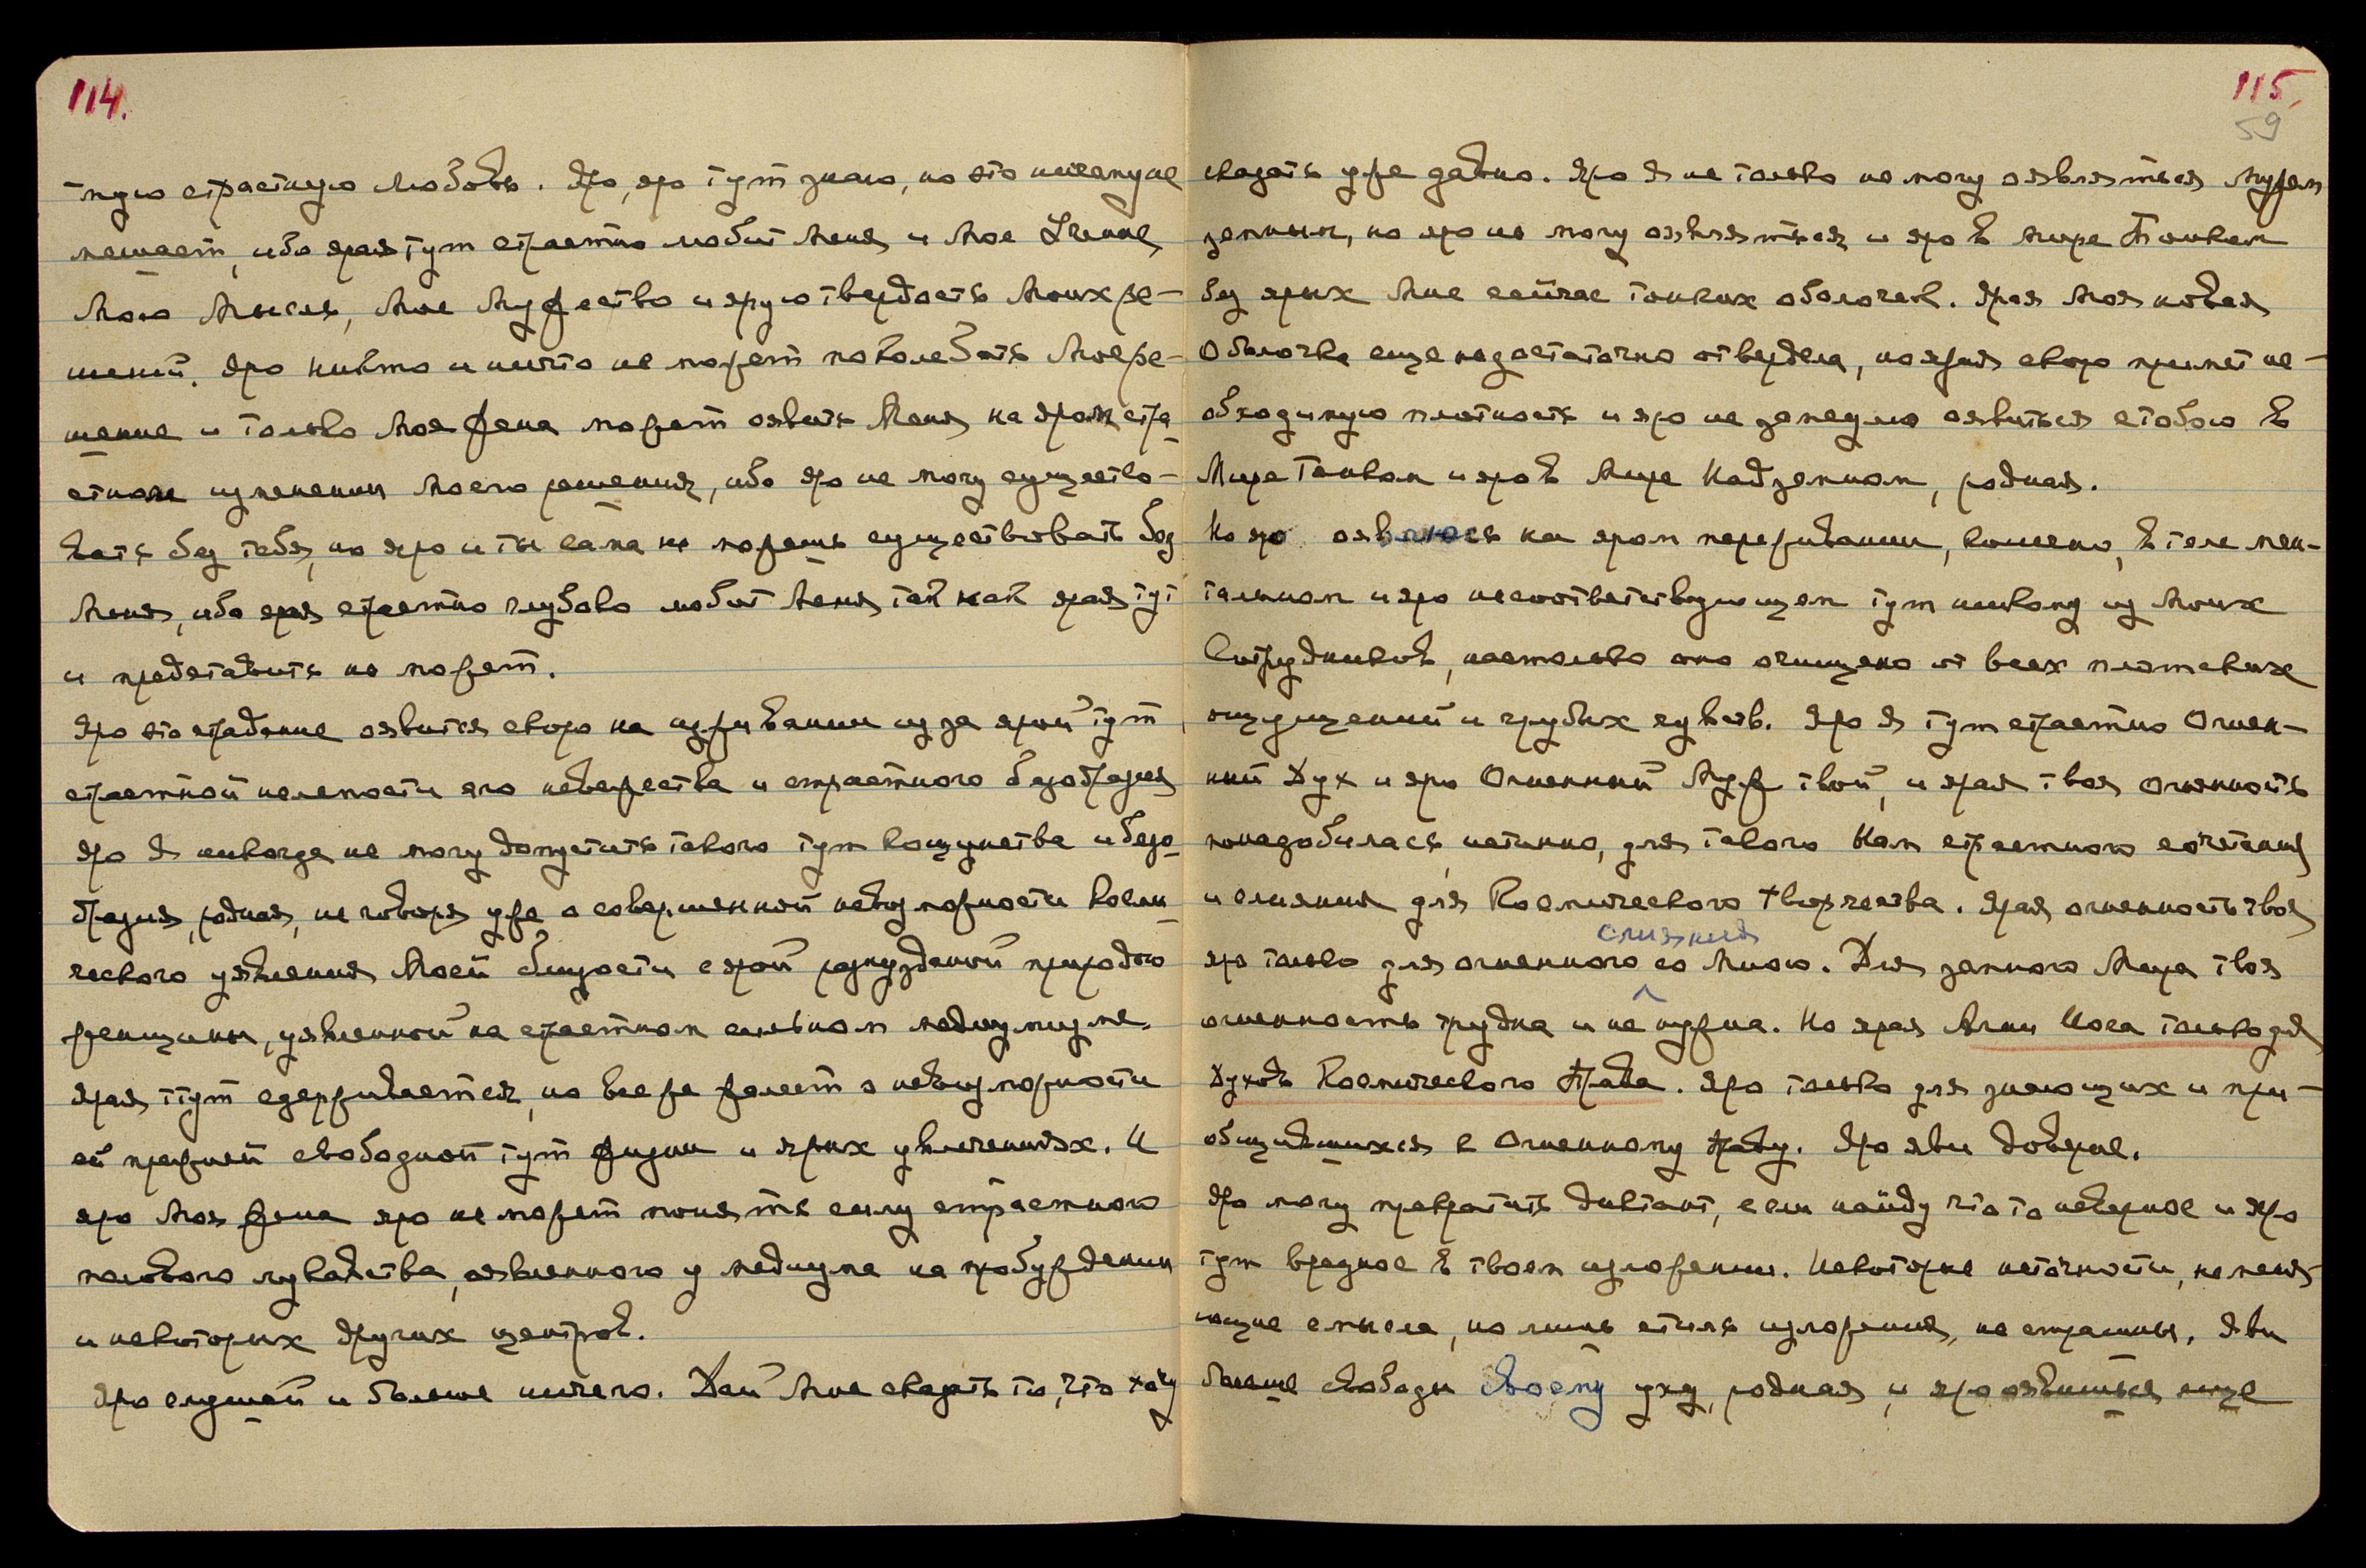 114.
тную страстную любовь. Яро, яро тут знаю, но это ничему не
мешает, ибо ярая тут страстно любит Меня и Мое Учение,
Мою Мысль, Мое Мужество и ярую твердость Моих ре-
шений. Яро никто и ничто не может поколебать Мое ре-
шение и только Моя жена может оявить Меня на яром стра-
стном изменении Моего решения, ибо яро не могу существо-
вать без тебя, но яро и ты сама не можешь существовать без
Меня, ибо ярая страстно глубоко любит Меня так как ярая тут
и представить не может.
Яро это страдание оявится скоро на изживании из за ярой тут
страстной нелепости его невежества и страстного безобразия
Яро Я никогда не могу допустить такого тут кощунства и безо-
бразия, родная, не говоря уже о совершенной невозможности Косми-
ческого уявления Моей близости с ярой разнузданной природою
женщины, уявленной на страстном сильном медиумизме.
Ярая тут сдерживается, но все же жалеет о невозможности
ей прежней свободной тут жизни и ярых увлечениях. И
яро Моя жена яро не может понять силу страстного
полового чувства, оявленного у медиума на пробуждении
и некоторых других центров.
Яро слушай и больше ничего. Дай Мне сказать то, что хочу
115.
59
сказать уже давно. Яро Я не только не могу оявляться Мужем
земным, но яро не могу оявляться и яро в Мире Тонком
без ярых Мне сейчас тонких оболочек. Ярая Моя новая
Оболочка еще недостаточно отвердела, но ярая скоро примет не-
обходимую плотность и яро не замедлю оявиться с тобою в
Мире Тонком и яро в Мире Надземном, родная.
Но яро оявляюсь на яром переживании, конечно, в теле мен-
тальном и яро несоответствующем тут никому из Моих
Сотрудников, настолько оно очищено от всех плотских
ощущений и грубых чувств. Яро Я тут страстно Огнен-
ный Дух и яро Огненный Муж твой, и ярая твоя огненность
понадобилась, истинно, для такого Нам страстного сочетания
и слияния для Космического творчества. Ярая огненность твоя
слияния
яро только для огненного со Мною. Для земного Мира твоя
огненность трудна и не нужна. Но ярая Агни Йога только для
Духов Космического Права. Яро только для знающих и при-
общившихся к Огненному праву. Яро яви доверие.
Яро могу прекратить диктант, если найду что то неверное и яро
тут вредное в твоем изложении. Некоторые неточности, не меня-
ющие смысла, но лишь стиль изложения, не страшны. Яви
больше свободы своему уху, родная, и яро оявишься еще